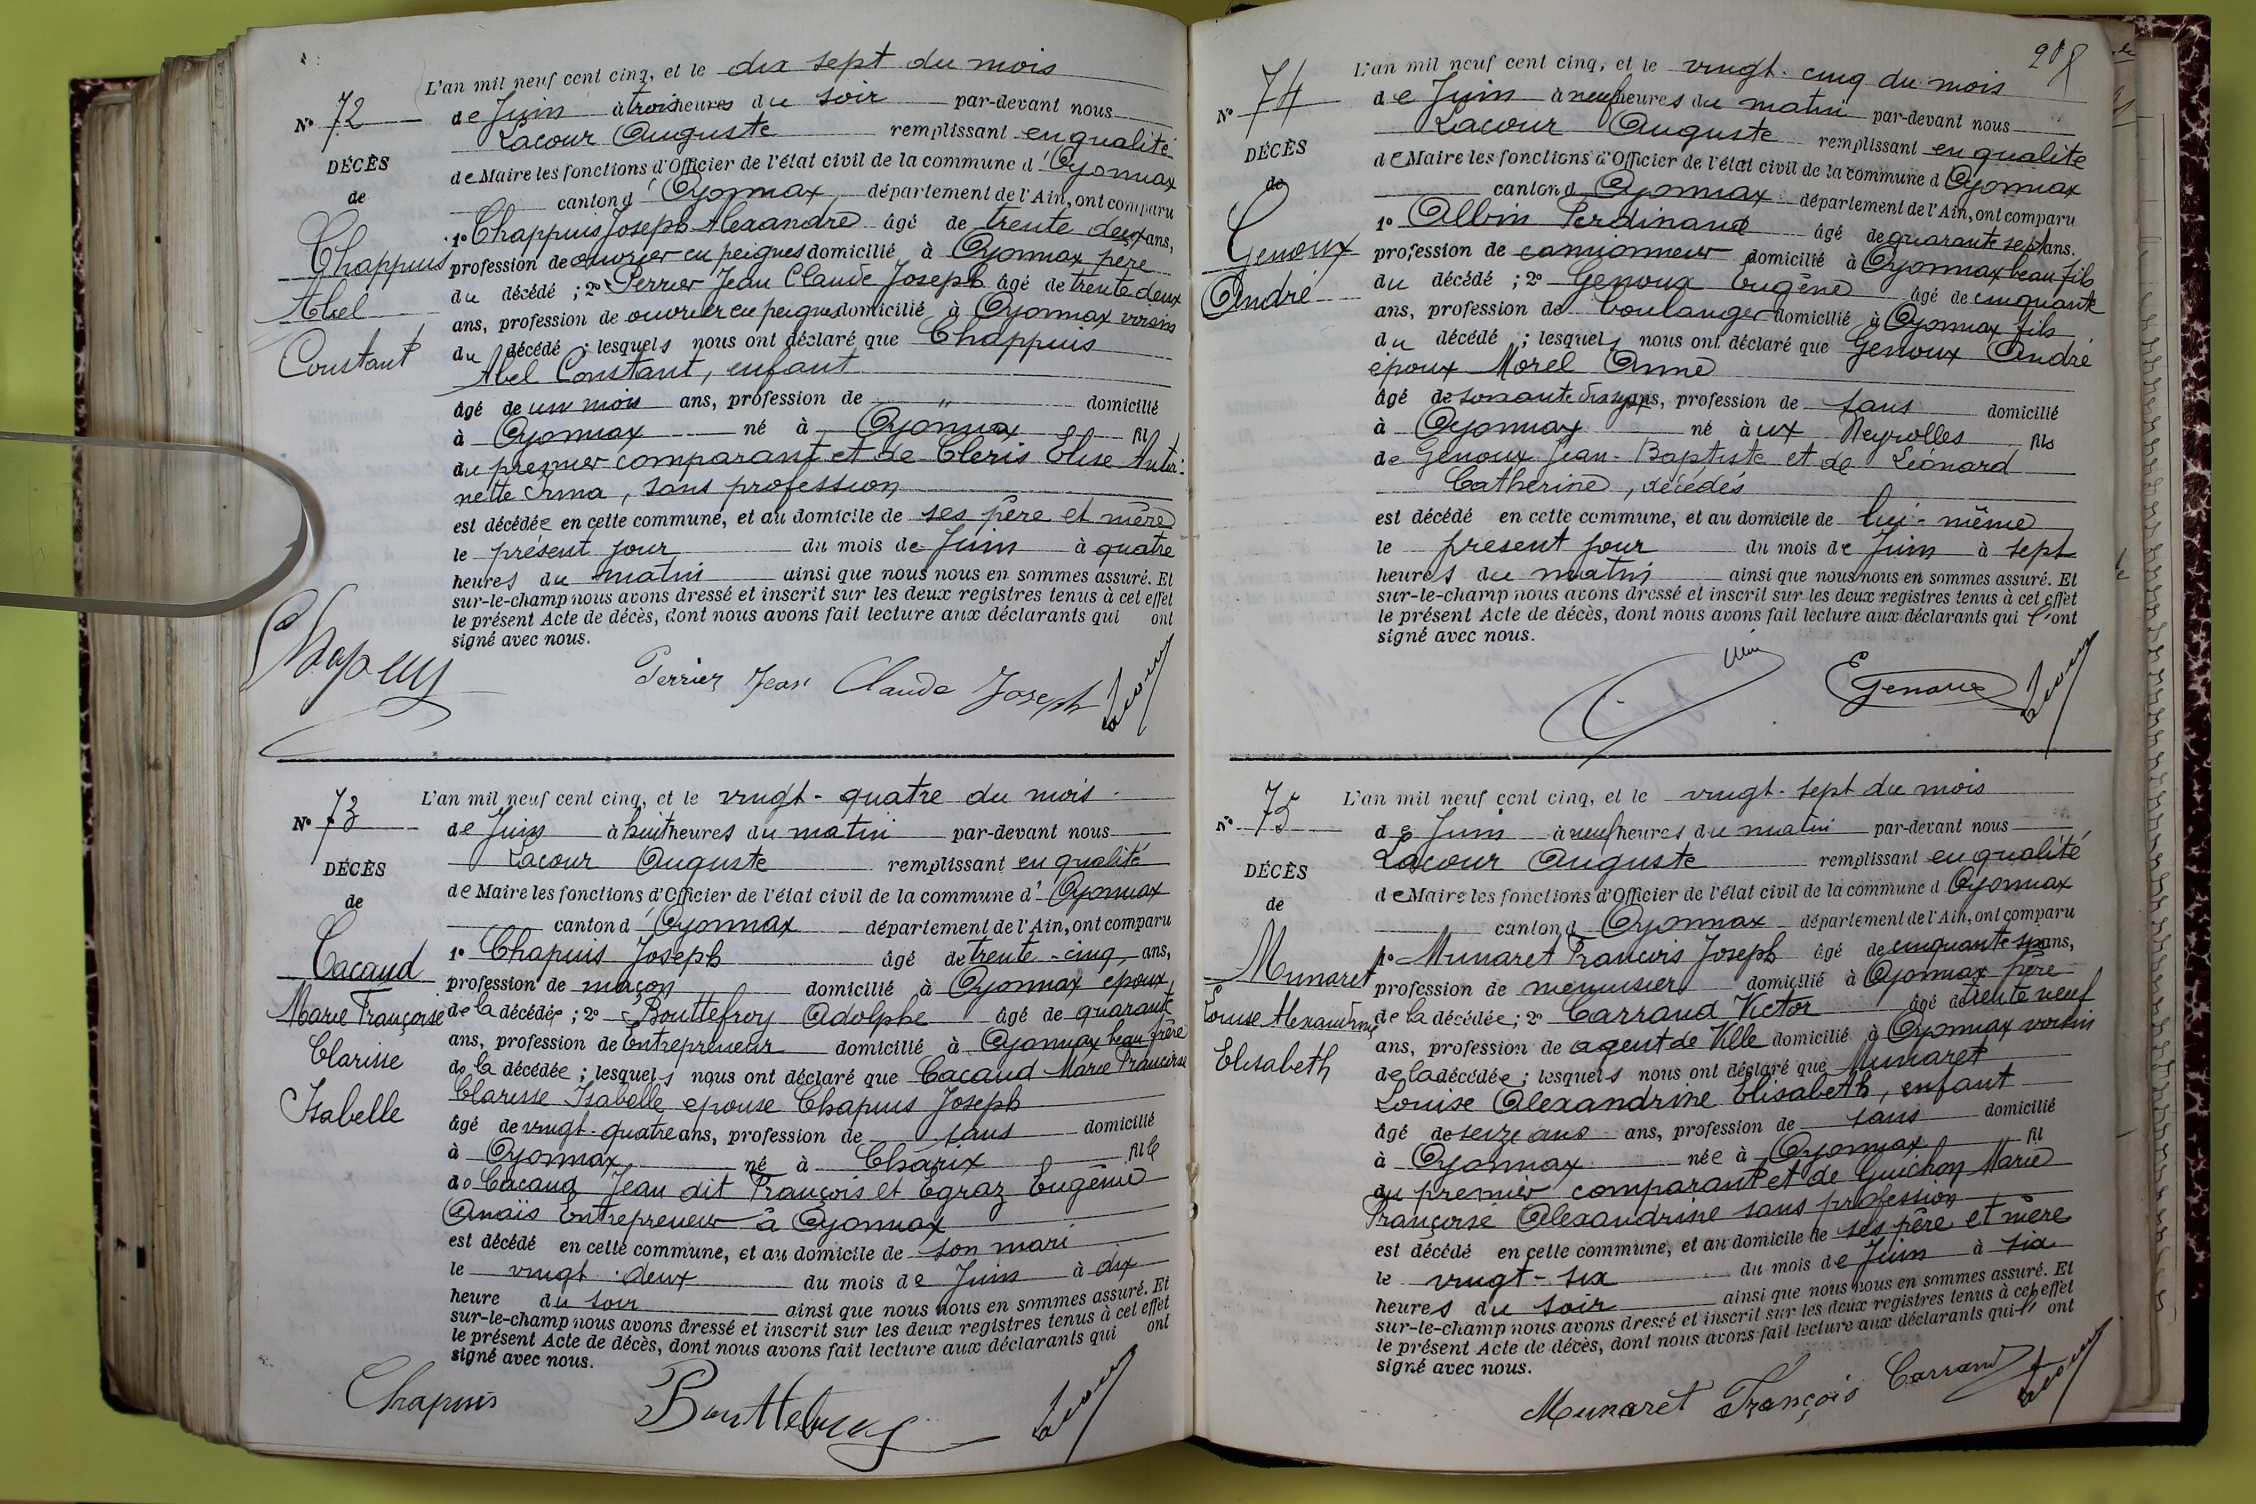 L'an mil neuf cent cinq, et le dix sept du mois
No 72
de Juin à trois heures du soir par-devant nous
Lacour Auguste remplissant en qualité
DÉCÈS
de Maire les fonctions d'Officier de l'état civil de la commune d'Oyonnax
de
canton d'Oyonnax département de l'Ain, ont comparu
Chappuis
Abel
Constant
1o Chappuis Joseph Alexandre âgé de trente deux ans,
profession de ouvrier en peignes domicilié à Oyonnax père
du décédé ; 2o Perrier Jean Claude Joseph âgé de trente deux
ans, profession de ouvrier en peignes domicilié à Oyonnax voisins
du décédé ; lesquels nous ont déclaré que Chappuis
Abel Constant, enfant
âgé de un mois ans, profession de " domicilié
à Oyonnax né à Oyonnax fils
du premier comparant et de Cleris Elise Antoi-
nette Irma, sans profession
est décédée en cette commune, et au domicile de ses père et mère
le présent jour du mois de Juin à quatre
heures du matin ainsi que nous nous en sommes assuré. Et
sur-le-champ nous avons dressé et inscrit sur les deux registres tenus à cet effet
le présent Acte de décès, dont nous avons fait lecture aux déclarants qui ont
signé avec nous.
Chapuis Perrier Jean Claude Joseph Lacour
L'an mil neuf cent cinq, et le vingt-quatre du mois
No 73
de Juin à huit heures du matin par-devant nous
Lacour Auguste remplissant en qualité
DÉCÈS
de Maire les fonctions d'Officier de l'état civil de la commune d'Oyonnax
de
canton d'Oyonnax département de l'Ain, ont comparu
Cacaud
Marie Françoise
Clarisse
Isabelle
1o Chapuis Joseph âgé de trente-cinq ans,
profession de maçon domicilié à Oyonnax époux
de la décédée ; 2o Bouttefroy Adolphe âgé de quarante
ans, profession de Entrepreneur domicilié à Oyonnax beau frère
de la décédée ; lesquels nous ont déclaré que Cacaud Marie Françoise
Clarisse Isabelle epouse Chapuis Joseph
âgé de vingt-quatre ans, profession de sans domicilié
à Oyonnax né à Charix fille
de Cacaud Jean dit François et Egraz Eugénie
Anaïs Entrepreneur à Oyonnax
est décédé en cette commune, et au domicile de son mari
le vingt-deux du mois de Juin à dix
heure du soir ainsi que nous nous en sommes assuré. Et
sur-le-champ nous avons dressé et inscrit sur les deux registres tenus à cet effet
le présent Acte de décès, dont nous avons fait lecture aux déclarants qui ont
signé avec nous.
Chapuis Bouttefroy Lacour
L'an mil neuf cent cinq, et le vingt-cinq du mois
No 74
de Juin à neuf heures du matin par-devant nous
Lacour Auguste remplissant en qualité
DÉCÈS
de Maire les fonctions d'Officier de l'état civil de la commune d Oyonnax
de
canton d Oyonnax département de l'Ain, ont comparu
Genoux
André
1o Albin Ferdinand âgé de quarante sept ans,
profession de camionneur domicilié à Oyonnax beau fils
du décédé ; 2o Genoux Eugène âgé de cinquante
ans, profession de boulanger domicilié à Oyonnax fils
du décédé ; lesquels nous ont déclaré que Genoux André
époux Morel Anne
âgé de soixante dix sept ans, profession de sans domicilié
à Oyonnax né à ux Neyrolles fils
de Genoux Jean-Baptiste et de Léonard
Catherine, décédés
est décédé en cette commune, et au domicile de lui-même
le présent jour du mois de Juin à sept
heures du matin ainsi que nous nous en sommes assuré. Et
sur-le-champ nous avons dressé et inscrit sur les deux registres tenus à cet effet
le présent Acte de décès, dont nous avons fait lecture aux déclarants qui l'ont
signé avec nous.
Albin EGenoux Lacour
L'an mil neuf cent cinq, et le vingt-sept du mois
No 75
de Juin à neuf heures du matin par-devant nous
Lacour Auguste remplissant en qualité
DÉCÈS
de Maire les fonctions d'Officier de l'état civil de la commune d Oyonnax
de
canton d Oyonnax département de l'Ain, ont comparu
Munaret
Louise Alexandrine
Elisabeth
1o Munaret François Joseph âgé de cinquante six ans,
profession de menuisier domicilié à Oyonnax père
de la décédée ; 2o Carraud Victor âgé de trente neuf
ans, profession de agent de Ville domicilié à Oyonnax voisin
de la décédée ; lesquels nous ont déclaré que Munaret
Louise Alexandrine Elisabeth, enfant
âgé de seize ans ans, profession de sans domicilié
à Oyonnax née à Oyonnax fil
du premier comparant et de Guichon Marie
Françoise Alexandrine sans profession
est décédé en cette commune, et au domicile de ses père et mère
le vingt-six du mois de Juin à six
heures du soir ainsi que nous nous en sommes assuré. Et
sur-le-champ nous avons dressé et inscrit sur les deux registres tenus à cet effet
le présent Acte de décès, dont nous avons fait lecture aux déclarants qui l'ont
signé avec nous.
Munaret François Carraud Lacour